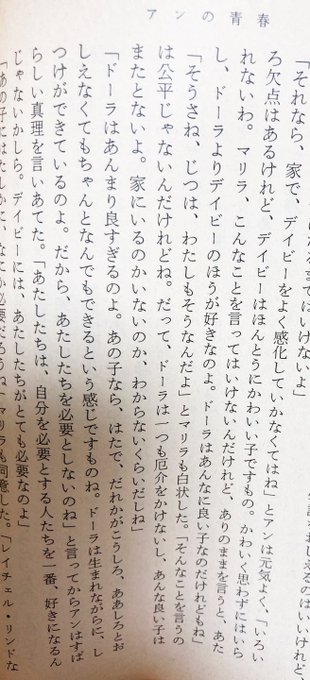 アンの青春
はいけないよ」
「それなら、家で、デイビーをよく感化していかなくてはね」とアンは元気よく、「いろい
ろ欠点はあるけれど、デイビーはほんとうにかわいい子ですもの。かわいく思わずにはいら
れないわ。マリラ、こんなことを言ってはいけないんだけれど、ありのままを言うと、あた
し、ドーラよりデイビーのほうが好きなのよ。ドーラはあんなに良い子なのだけれどもね」
「そうさね、じつは、わたしもそうなんだよ」とマリラも白状した。「そんなことを言うの
は公平じゃないんだけれどね。だって、ドーラは一つも厄介をかけないし、あんな良い子は
またとないよ。家にいるのかいないのか、わからないくらいだしね」
「ドーラはあんまり良すぎるのよ。あの子なら、はたで、だれかがこうしろ、ああしろとお
しえなくてもちゃんとなんでもできるという感じですものね。ドーラは生まれながらに、し
つけができているのよ。だから、あたしたちを必要としないのね」と言ってからアンはすば
らしい真理を言いあてた。「あたしたちは、自分を必要とする人たちを一番、好きになるん
じゃないかしら。デイビーには、あたしたちがとても必要なのよ」
「あの子にはたしかに、なにか必要だろうね」マリラも同意した。「レイチェル・リンドな